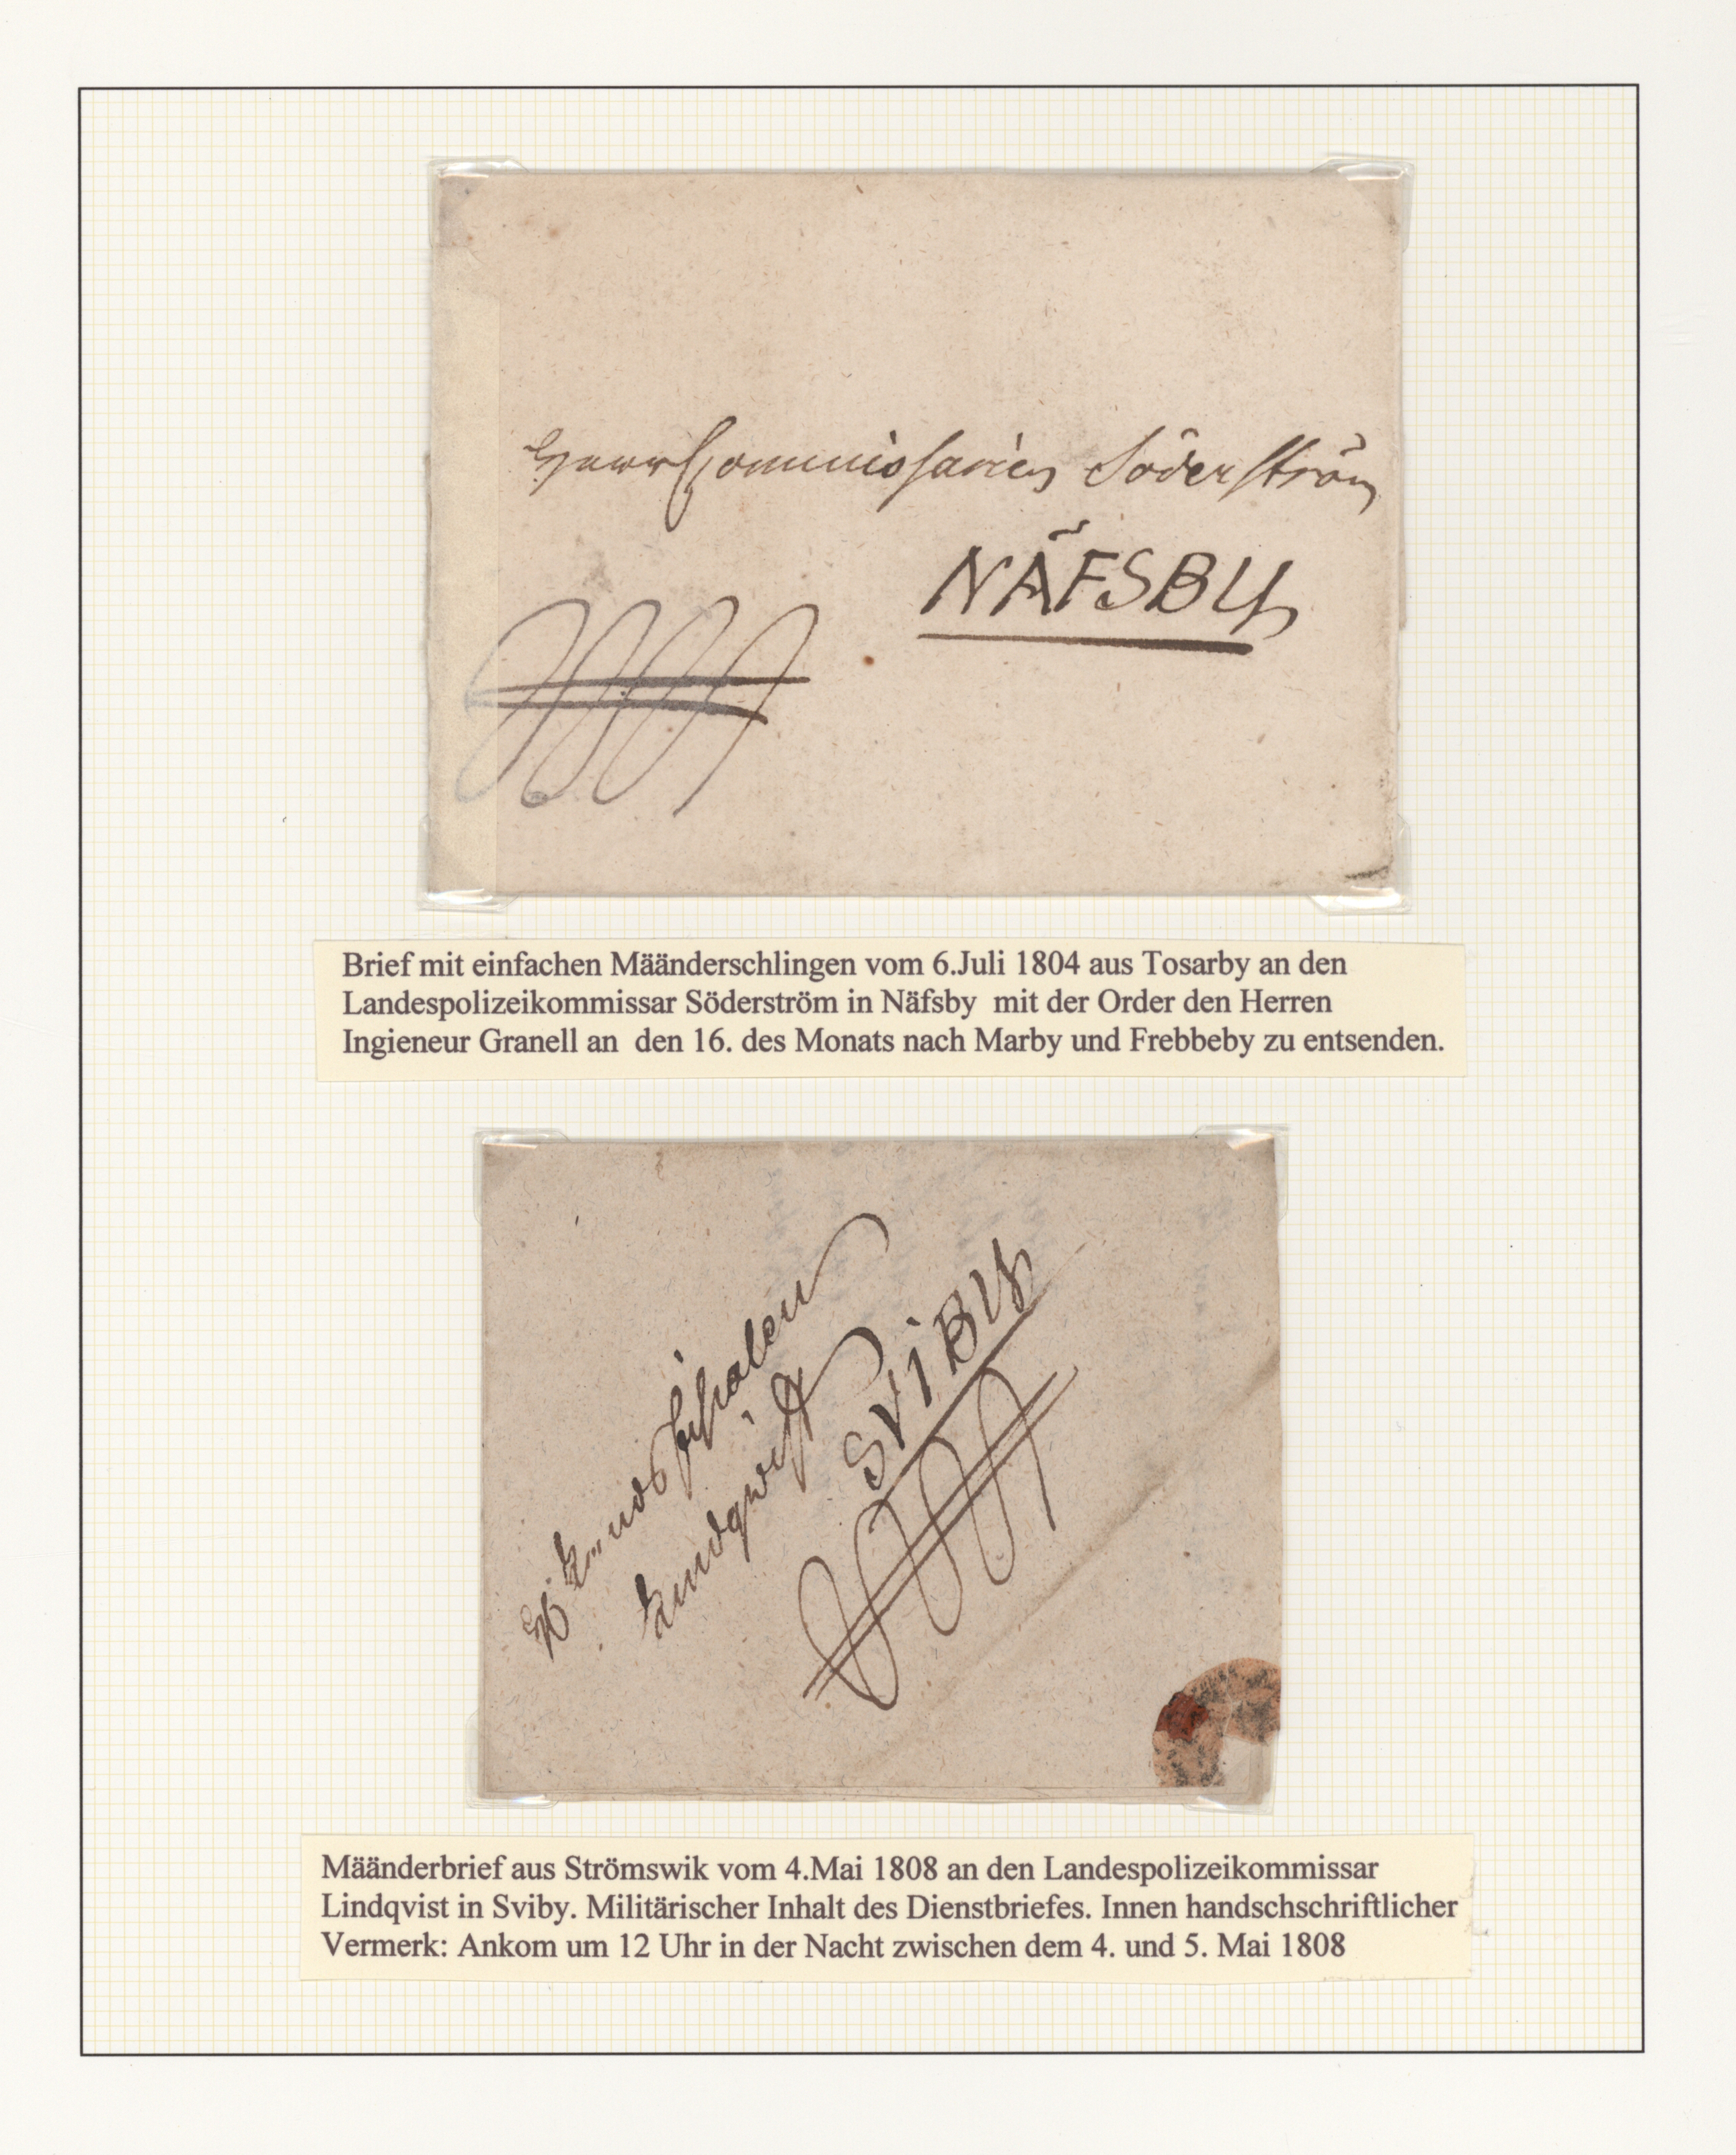 Herr Commissarien Söderström
NÄFSBY
Brief mit einfachen Määnderschlingen vom 6.Juli 1804 aus Tosarby an den
Landespolizeikommissar Söderström in Näfsby mit der Order den Herren
Ingieneur Granell an den 16. des Monats nach Marby und Frebbeby zu entsenden.
Lindqwist
SViBY
Määnderbrief aus Strömswik vom 4.Mai 1808 an den Landespolizeikommissar
Lindqvist in Sviby. Militärischer Inhalt des Dienstbriefes. Innen handschschriftlicher
Vermerk: Ankom um 12 Uhr in der Nacht zwischen dem 4. und 5. Mai 1808